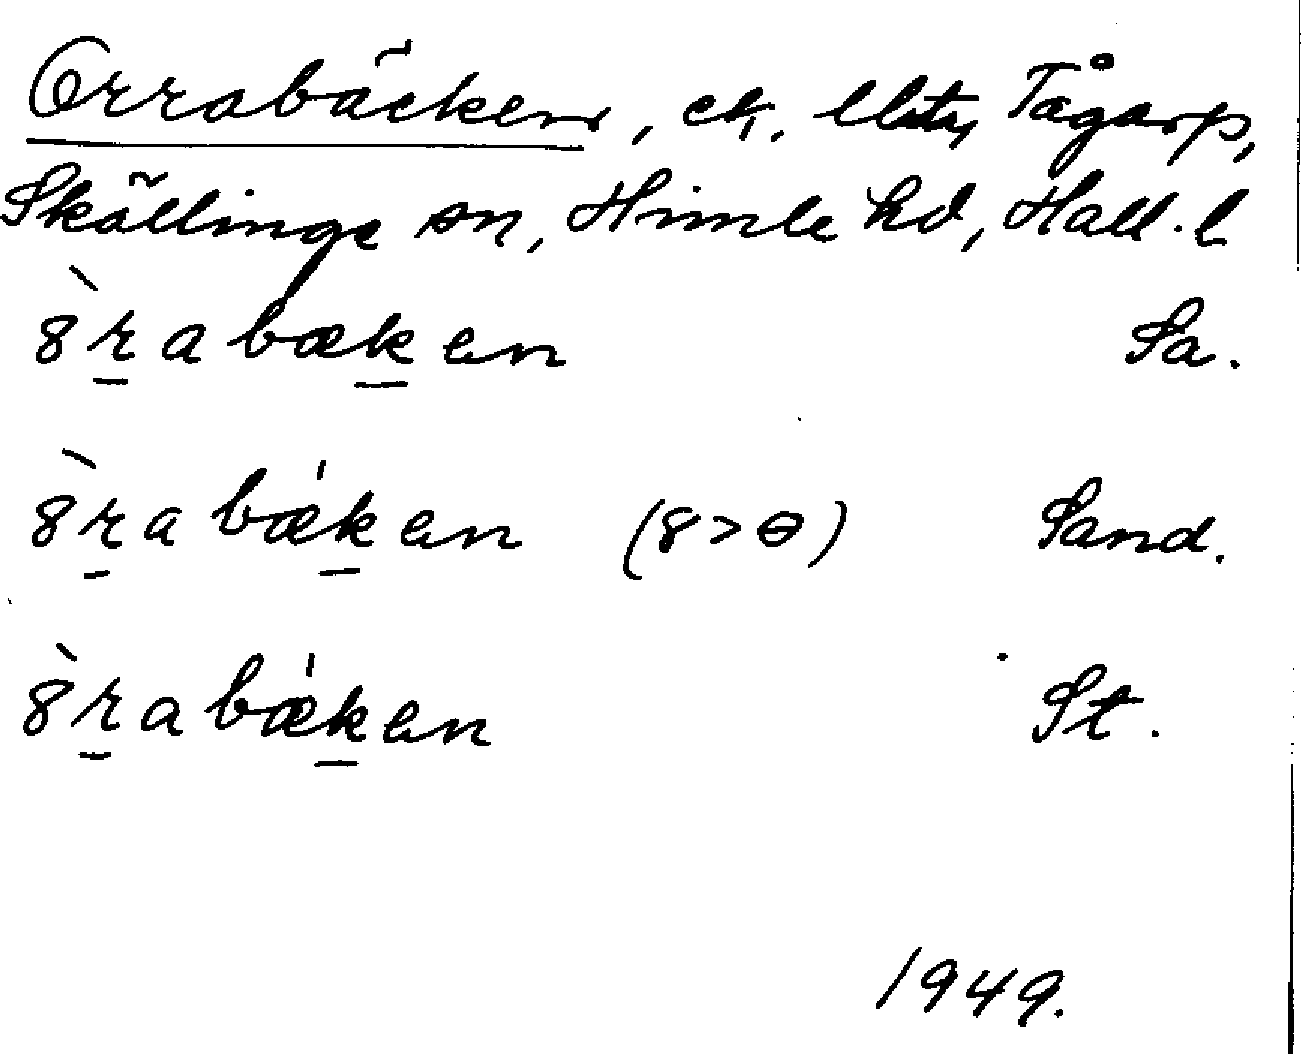 Orrabäcken, ek. Tågarp,
Skällinge sn, Himle hd, Hall. l
8̀r̲abæk̲en Sa.
8̀r̲abǽk̲en (8>ɵ) Sand.
8̀r̲abǽk̲en St.
1949.